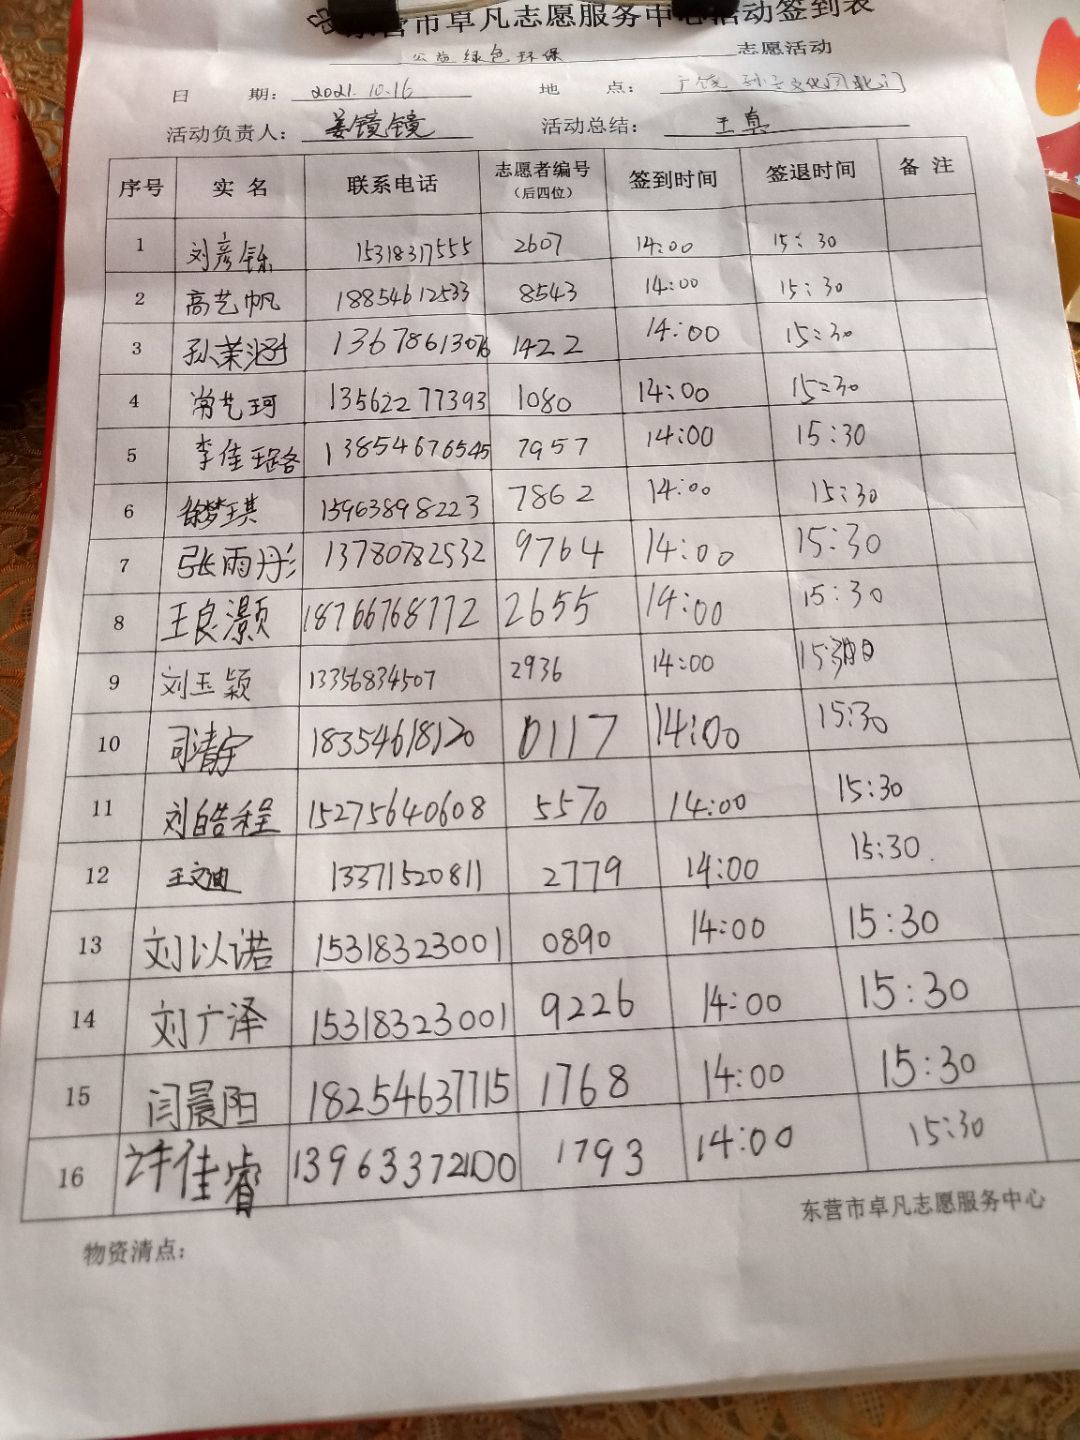 东营市卓凡志愿服务中心活动签到表
公益绿色环保 志愿活动
日 期： 2021.10.16 地 点： 广饶孙子文化园北门
活动负责人： 姜镜镜 活动总结： 王真
序号 实 名 联系电话 志愿者编号（后四位） 签到时间 签退时间 备 注
1 刘彦铄 15318317555 2607 14:00 15:30
2 高艺帆 18854612533 8543 14:00 15:30
3 孙茉涵 13678613076 1422 14:00 15:30
4 常艺珂 13562277393 1080 14:00 15:30
5 李佳璐 13854676545 7957 14:00 15:30
6 徐梦琪 15963898223 7862 14:00 15:30
7 张雨彤 13780782532 9764 14:00 15:30
8 王良灏 18766768772 2655 14:00 15:30
9 刘玉颖 13356834507 2936 14:00
10 司清宇 18354618120 0117 14:00 15:30
11 刘皓程 15275640608 5570 14:00 15:30
12 王文迪 13371520811 2779 14:00 15:30
13 刘以诺 15318323001 0890 14:00 15:30
14 刘广泽 15318323001 9226 14:00 15:30
15 闫晨阳 18254637715 1768 14:00 15:30
16 许佳睿 1793 14:00 15:30
东营市卓凡志愿服务中心
物资清点：